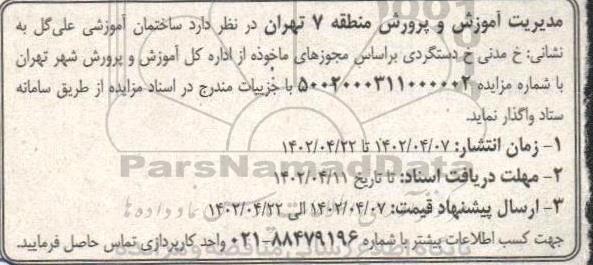 مدیریت آموزش و پرورش منطقه ۷ تهران در نظر دارد ساختمان آموزشی علی‌گل به
نشانی: خ مدنی خ دستگردی براساس مجوزهای ماخوذه از اداره کل آموزش و پرورش شهر تهران
با شماره مزایده ۵۰۰۲۰۰۰۳۱۱۰۰۰۰۰۲ با جزییات مندرج در اسناد مزایده از طریق سامانه
ستاد واگذار نماید.
۱- زمان انتشار: ۱۴۰۲/۰۴/۰۷ تا ۱۴۰۲/۰۴/۲۲
ParsNamadData
۲- مهلت دریافت اسناد: تا تاریخ ۱۴۰۲/۰۴/۱۱
۳- ارسال پیشنهاد قیمت: ۱۴۰۲/۰۴/۰۷ الی ۱۴۰۲/۰۴/۲۲
جهت کسب اطلاعات بیشتر با شماره ۸۸۴۷۹۱۹۶-۰۲۱ واحد کارپردازی تماس حاصل فرمایید.